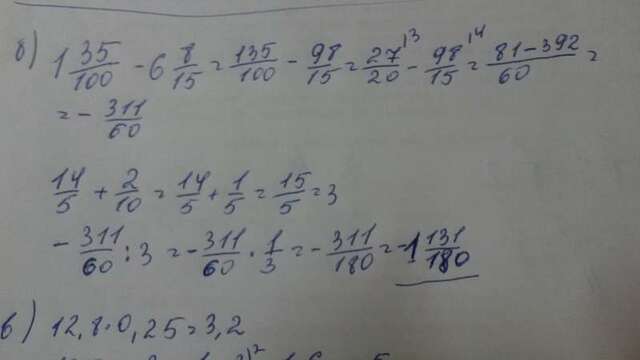 б) 1 35/100 - 6 8/15 = 135/100 - 98/15 = 27/20 ⁾³ - 98/15 ⁾⁴ = 81-392/60 =
= - 311/60
14/5 + 2/10 = 14/5 + 1/5 = 15/5 = 3
- 311/60 : 3 = - 311/60 · 1/3 = - 311/180 = -1 131/180
в) 12,8·0,25=3,2